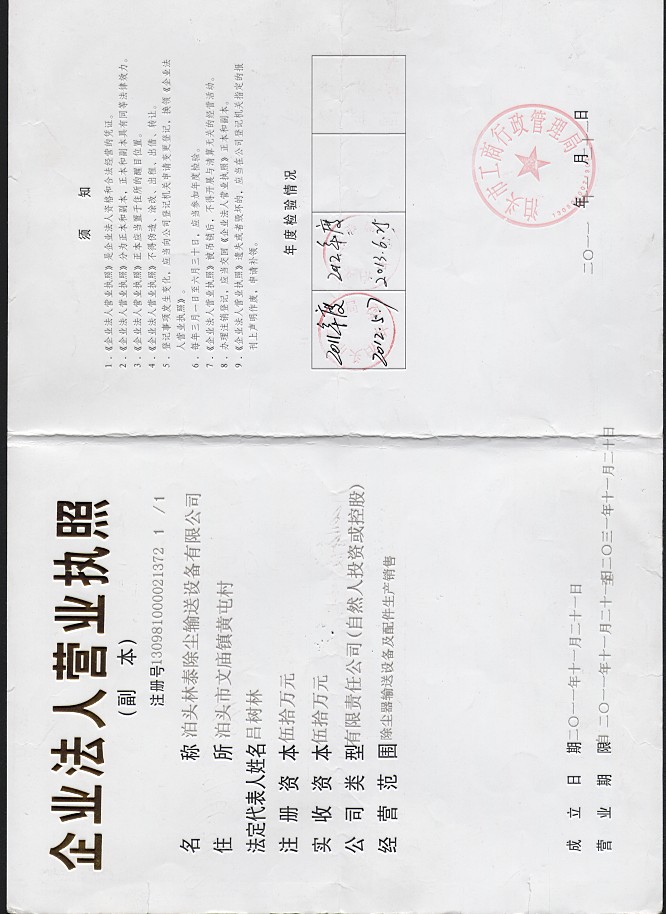 企业法人营业执照
(副 本)
注册号130981000021372 1 / 1
名 称 泊头林泰除尘输送设备有限公司
住 所 泊头市文庙镇黄屯村
法定代表人姓名 吕树林
注 册 资 本 伍拾万元
实 收 资 本 伍拾万元
公 司 类 型 有限责任公司(自然人投资或控股)
经 营 范 围 除尘器输送设备及配件生产销售
成 立 日 期 二〇一一年十一月二十一日
营 业 期 限 自二〇一一年十一月二十一日至二〇三一年十一月二十日
须 知
1.《企业法人营业执照》是企业法人资格和合法经营的凭证。
2.《企业法人营业执照》分为正本和副本，正本和副本具有同等法律效力。
3.《企业法人营业执照》正本应当置于住所的醒目位置。
4.《企业法人营业执照》不得伪造、涂改、出租、出借、转让。
5.登记事项发生变化，应当向公司登记机关申请变更登记，换领《企业法
人营业执照》。
6.每年三月一日至六月三十日，应当参加年度检验。
7.《企业法人营业执照》被吊销后，不得开展与清算无关的经营活动。
8.办理注销登记，应当交回《企业法人营业执照》正本和副本。
9.《企业法人营业执照》遗失或者毁坏的，应当在公司登记机关指定的报
刊上声明作废，申请补领。
年度检验情况
2011年度
2012.5.7
2012年度
2013.6.25
泊头市工商行政管理局
二〇一一 年 月 日